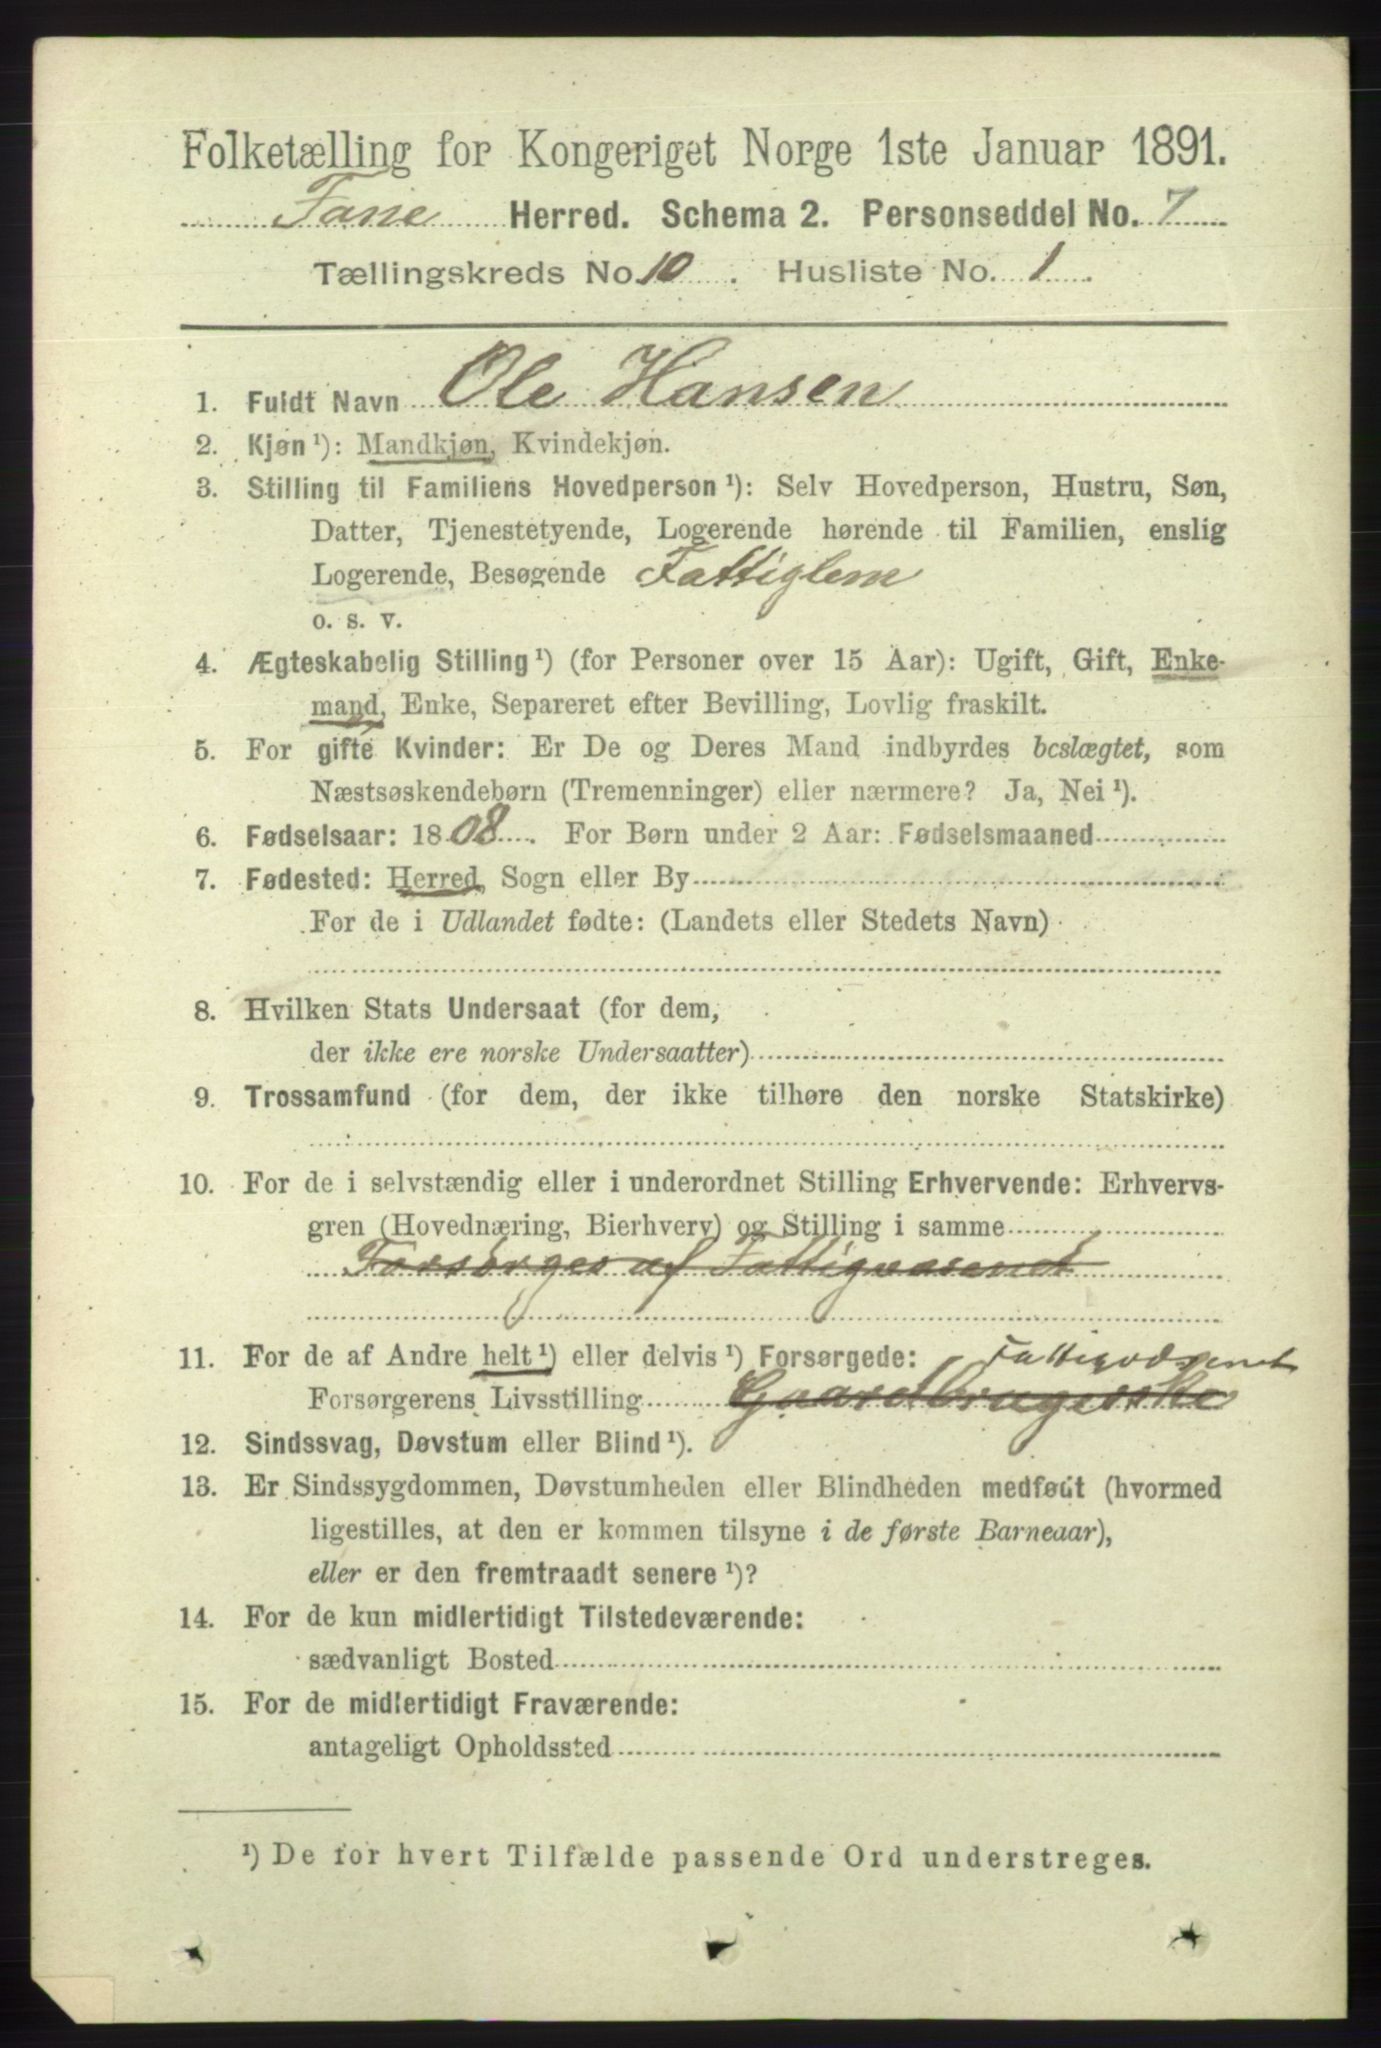 Folketælling for Kongeriget Norge 1ste Januar 1891.
Fane Herred. Schema 2. Personseddel No. 7
Tællingskreds No. 10. Husliste No. 1
1. Fuldt Navn Ole Hansen
2. Kjøn¹): Mandkjøn, Kvindekjøn.
3. Stilling til Familiens Hovedperson¹): Selv Hovedperson, Hustru, Søn,
Datter, Tjenestetyende, Logerende hørende til Familien, enslig
Logerende, Besøgende Fattiglem
o. s. v.
4. Ægteskabelig Stilling¹) (for Personer over 15 Aar): Ugift, Gift, Enke-
mand, Enke, Separeret efter Bevilling, Lovlig fraskilt.
5. For gifte Kvinder: Er De og Deres Mand indbyrdes beslægtet, som
Næstsøskendebørn (Tremenninger) eller nærmere? Ja, Nei¹).
6. Fødselsaar: 1808. For Børn under 2 Aar: Fødselsmaaned
7. Fødested: Herred, Sogn eller By
For de i Udlandet fødte: (Landets eller Stedets Navn)
8. Hvilken Stats Undersaat (for dem,
der ikke ere norske Undersaatter)
9. Trossamfund (for dem, der ikke tilhøre den norske Statskirke)
10. For de i selvstændig eller i underordnet Stilling Erhvervende: Erhvervs-
gren (Hovednæring, Bierhverv) og Stilling i samme
Forsørges af Fattigvæsenet
11. For de af Andre helt¹) eller delvis¹) Forsørgede: Fattigvæsenet
Forsørgerens Livsstilling Gaardbrugerske
12. Sindssvag, Døvstum eller Blind¹).
13. Er Sindssygdommen, Døvstumheden eller Blindheden medfødt (hvormed
ligestilles, at den er kommen tilsyne i de første Barneaar),
eller er den fremtraadt senere¹)?
14. For de kun midlertidigt Tilstedeværende:
sædvanligt Bosted
15. For de midlertidigt Fraværende:
antageligt Opholdssted
¹) De for hvert Tilfælde passende Ord understreges.